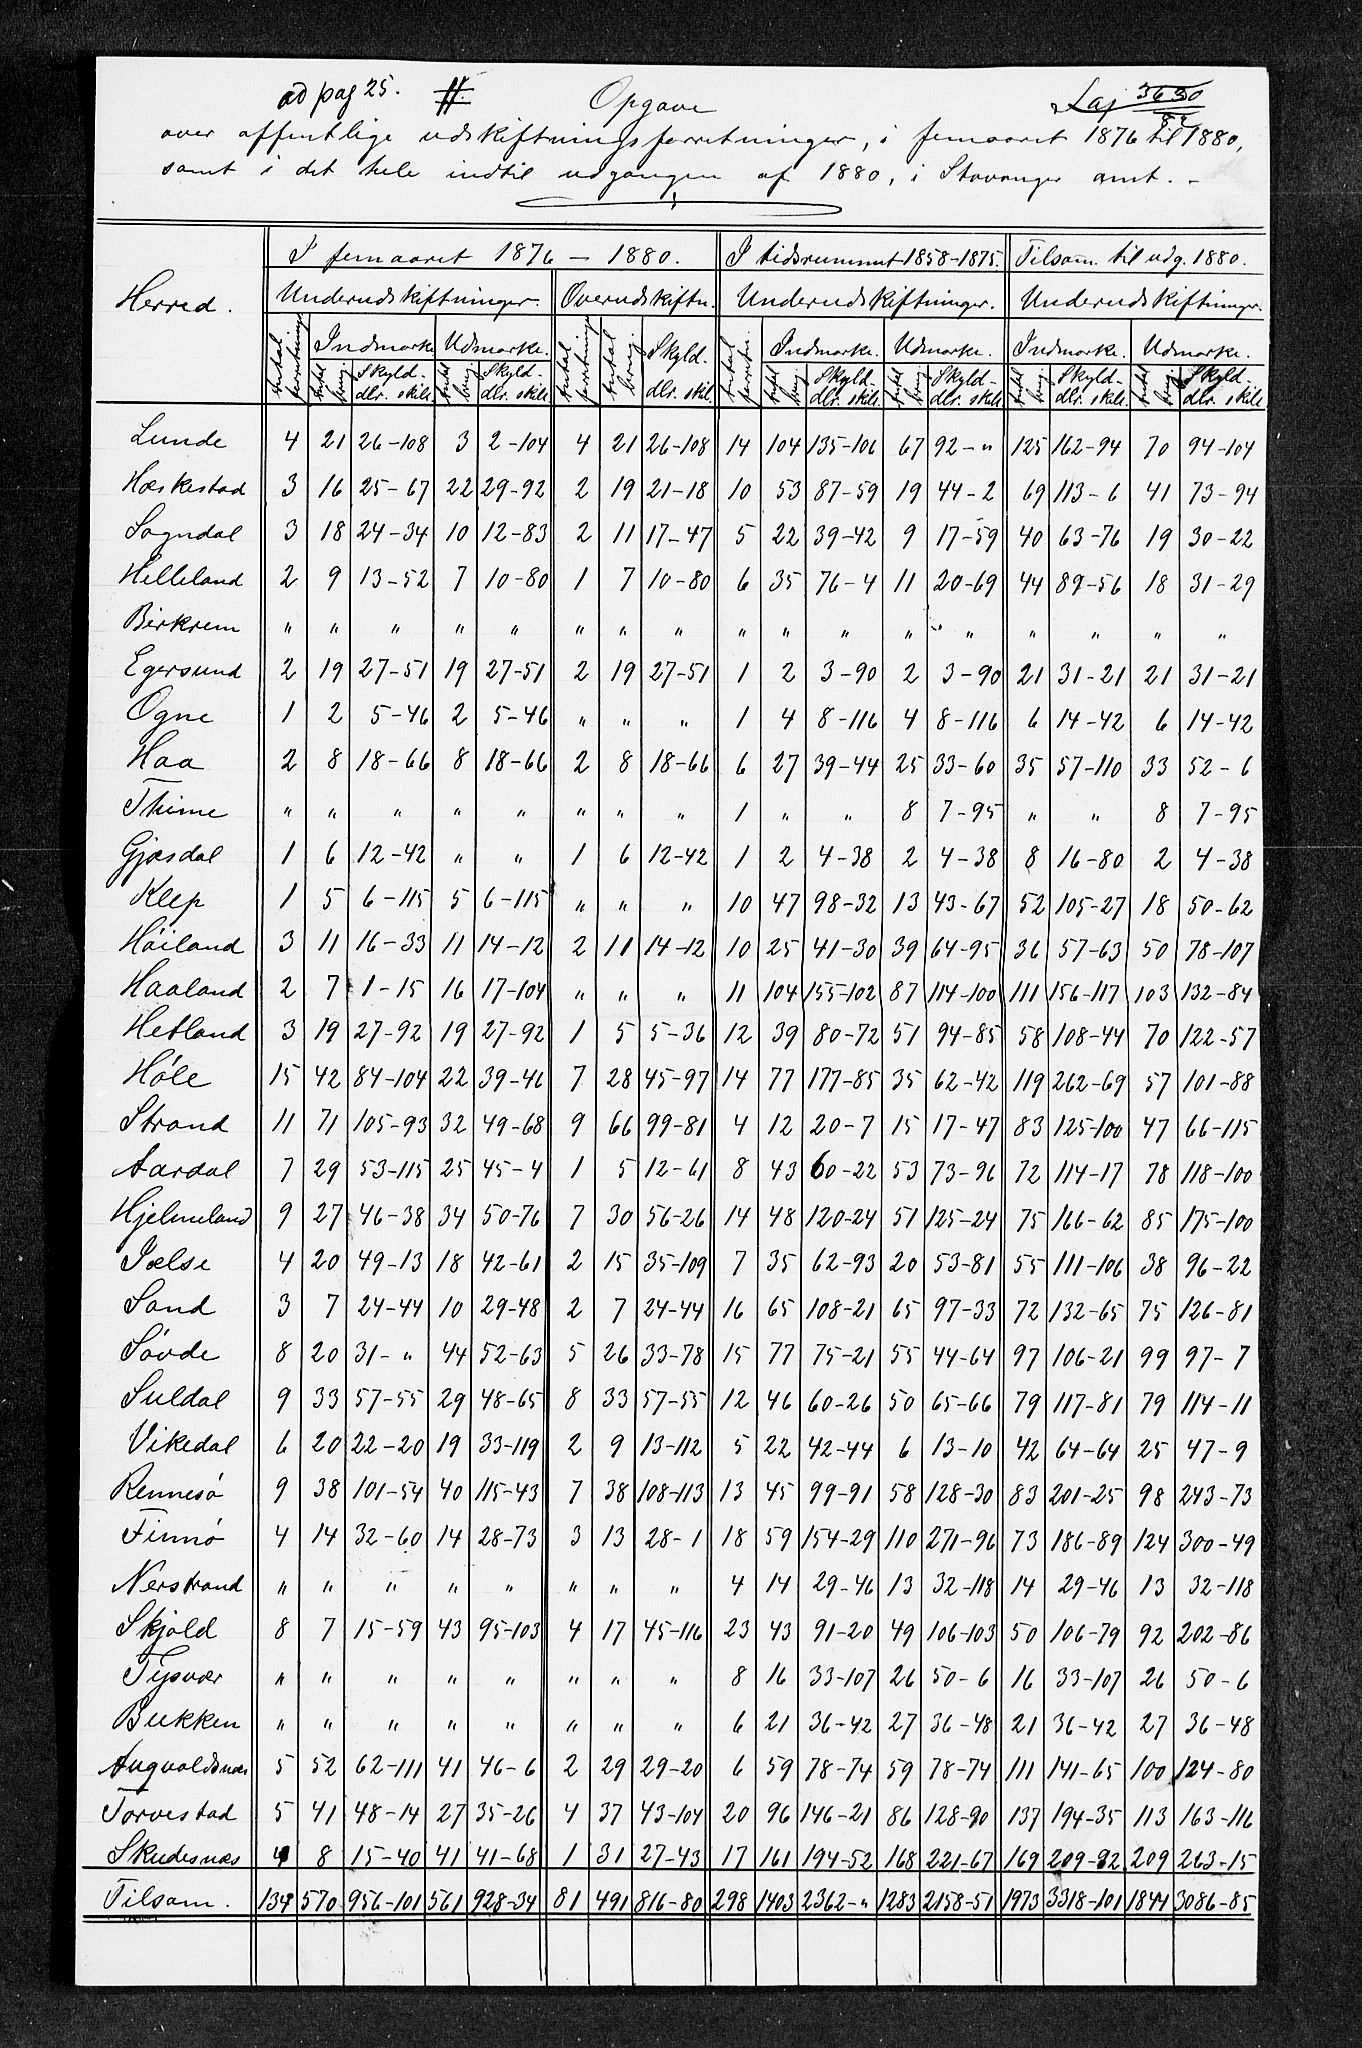 ad pag 25. # Opgave Laj 3630/82
over offentlige udskiftningsforretninger, i femaaret 1876 til 1880,
samt i det hele indtil udgangen af 1880, i Stavanger amt. -
Herred. | I femaaret 1876 - 1880. | I tidsrummet 1858-1875. | Tilsam. til udg. 1880.
Underudskiftninger. | Overudskiftn. | Underudskiftninger. | Underudskiftninger.
Antal forretninger | Indmarke | Udmarke. | Antal forretninger | Antal brug | Skyld. | Antal forretn. | Indmarke. | Udmarke. | Indmarke. | Udmarke.
Antal brug | Skyld. dlr. skill. | Antal brug | Skyld. dlr. skill. | dlr. skil. | Antal brug | Skyld. dlr. skil. | Antal brug | Skyld. dlr. skil. | Antal brug | Skyld. dlr. skil. | Antal brug | Skyld. dlr. skil.
Lunde | 4 | 21 | 26-108 | 3 | 2-104 | 4 | 21 | 26-108 | 14 | 104 | 135-106 | 67 | 92-" | 125 | 162-94 | 70 | 94-104
Heskestad | 3 | 16 | 25-67 | 22 | 29-92 | 2 | 19 | 21-18 | 10 | 53 | 87-59 | 19 | 44-2 | 69 | 113-6 | 41 | 73-94
Sogndal | 3 | 18 | 24-34 | 10 | 12-83 | 2 | 11 | 17-47 | 5 | 22 | 39-42 | 9 | 17-59 | 40 | 63-76 | 19 | 30-22
Helleland | 2 | 9 | 13-52 | 7 | 10-80 | 1 | 7 | 10-80 | 6 | 35 | 76-4 | 11 | 20-69 | 44 | 89-56 | 18 | 31-29
Birkrem | " | " | " | " | " | " | " | " | " | " | " | " | " | " | " | " | "
Egersund | 2 | 19 | 27-51 | 19 | 27-51 | 2 | 19 | 27-51 | 1 | 2 | 3-90 | 2 | 3-90 | 21 | 31-21 | 21 | 31-21
Ogne | 1 | 2 | 5-46 | 2 | 5-46 | " | " | " | 1 | 4 | 8-116 | 4 | 8-116 | 6 | 14-42 | 6 | 14-42
Haa | 2 | 8 | 18-66 | 8 | 18-66 | 2 | 8 | 18-66 | 6 | 27 | 39-44 | 25 | 33-60 | 35 | 57-110 | 33 | 52-6
Thime | " | " | " | " | " | " | " | " | 1 | " | " | 8 | 7-95 | " | " | 8 | 7-95
Gjæsdal | 1 | 6 | 12-42 | " | " | 1 | 6 | 12-42 | 1 | 2 | 4-38 | 2 | 4-38 | 8 | 16-80 | 2 | 4-38
Klep | 1 | 5 | 6-115 | 5 | 6-115 | " | " | " | 10 | 47 | 98-32 | 13 | 43-67 | 52 | 105-27 | 18 | 50-62
Höiland | 3 | 11 | 16-33 | 11 | 14-12 | 2 | 11 | 14-12 | 10 | 25 | 41-30 | 39 | 64-95 | 36 | 57-63 | 50 | 78-107
Haaland | 2 | 7 | 1-15 | 16 | 17-104 | " | " | " | 11 | 104 | 155-102 | 87 | 114-100 | 111 | 156-117 | 103 | 132-84
Hetland | 3 | 19 | 27-92 | 19 | 27-92 | 1 | 5 | 5-36 | 12 | 39 | 80-72 | 51 | 94-85 | 58 | 108-44 | 70 | 122-57
Høle | 15 | 42 | 84-104 | 22 | 39-46 | 7 | 28 | 45-97 | 14 | 77 | 177-85 | 35 | 62-42 | 119 | 262-69 | 57 | 101-88
Strand | 11 | 71 | 105-93 | 32 | 49-68 | 9 | 66 | 99-81 | 4 | 12 | 20-7 | 15 | 17-47 | 83 | 125-100 | 47 | 66-115
Aardal | 7 | 29 | 53-115 | 25 | 45-4 | 1 | 5 | 12-61 | 8 | 43 | 60-22 | 53 | 73-96 | 72 | 114-17 | 78 | 118-100
Hjelmeland | 9 | 27 | 46-38 | 34 | 50-76 | 7 | 30 | 56-26 | 14 | 48 | 120-24 | 51 | 125-24 | 75 | 166-62 | 85 | 175-100
Jælse | 4 | 20 | 49-13 | 18 | 42-61 | 2 | 15 | 35-109 | 7 | 35 | 62-93 | 20 | 53-81 | 55 | 111-106 | 38 | 96-22
Sand | 3 | 7 | 24-44 | 10 | 29-48 | 2 | 7 | 24-44 | 16 | 65 | 108-21 | 65 | 97-33 | 72 | 132-65 | 75 | 126-81
Søvde | 8 | 20 | 31-" | 44 | 52-63 | 5 | 26 | 33-78 | 15 | 77 | 75-21 | 55 | 44-64 | 97 | 106-21 | 99 | 97-7
Suldal | 9 | 33 | 57-55 | 29 | 48-65 | 8 | 33 | 57-55 | 12 | 46 | 60-26 | 50 | 65-66 | 79 | 117-81 | 79 | 114-11
Vikedal | 6 | 20 | 22-20 | 19 | 33-119 | 2 | 9 | 13-112 | 5 | 22 | 42-44 | 6 | 13-10 | 42 | 64-64 | 25 | 47-9
Rennesö | 9 | 38 | 101-54 | 40 | 115-43 | 7 | 38 | 108-113 | 13 | 45 | 99-91 | 58 | 128-30 | 83 | 201-25 | 98 | 243-73
Finnø | 4 | 14 | 32-60 | 14 | 28-73 | 3 | 13 | 28-1 | 18 | 59 | 154-29 | 110 | 271-96 | 73 | 186-89 | 124 | 300-49
Nerstrand | " | " | " | " | " | " | " | " | 4 | 14 | 29-46 | 13 | 32-118 | 14 | 29-46 | 13 | 32-118
Skjold | 8 | 7 | 15-59 | 43 | 95-103 | 4 | 17 | 45-116 | 23 | 43 | 91-20 | 49 | 106-103 | 50 | 106-79 | 92 | 202-86
Tysvær | " | " | " | " | " | " | " | " | 8 | 16 | 33-107 | 26 | 50-6 | 16 | 33-107 | 26 | 50-6
Bukken | " | " | " | " | " | " | " | " | 6 | 21 | 36-42 | 27 | 36-48 | 21 | 36-42 | 27 | 36-48
Augvaldsnæs | 5 | 52 | 62-111 | 41 | 46-6 | 2 | 29 | 29-20 | 6 | 59 | 78-74 | 59 | 78-74 | 111 | 141-65 | 100 | 124-80
Torvestad | 5 | 41 | 48-14 | 27 | 35-26 | 4 | 37 | 43-104 | 20 | 96 | 146-21 | 86 | 128-90 | 137 | 194-35 | 113 | 163-116
Skudesnæs | 4 | 8 | 15-40 | 41 | 41-68 | 1 | 31 | 27-43 | 17 | 161 | 194-52 | 168 | 221-67 | 169 | 209-92 | 209 | 263-15
Tilsam. | 134 | 570 | 956-101 | 561 | 928-34 | 81 | 491 | 816-80 | 298 | 1403 | 2362-" | 1283 | 2158-51 | 1973 | 3318-101 | 1844 | 3086-85